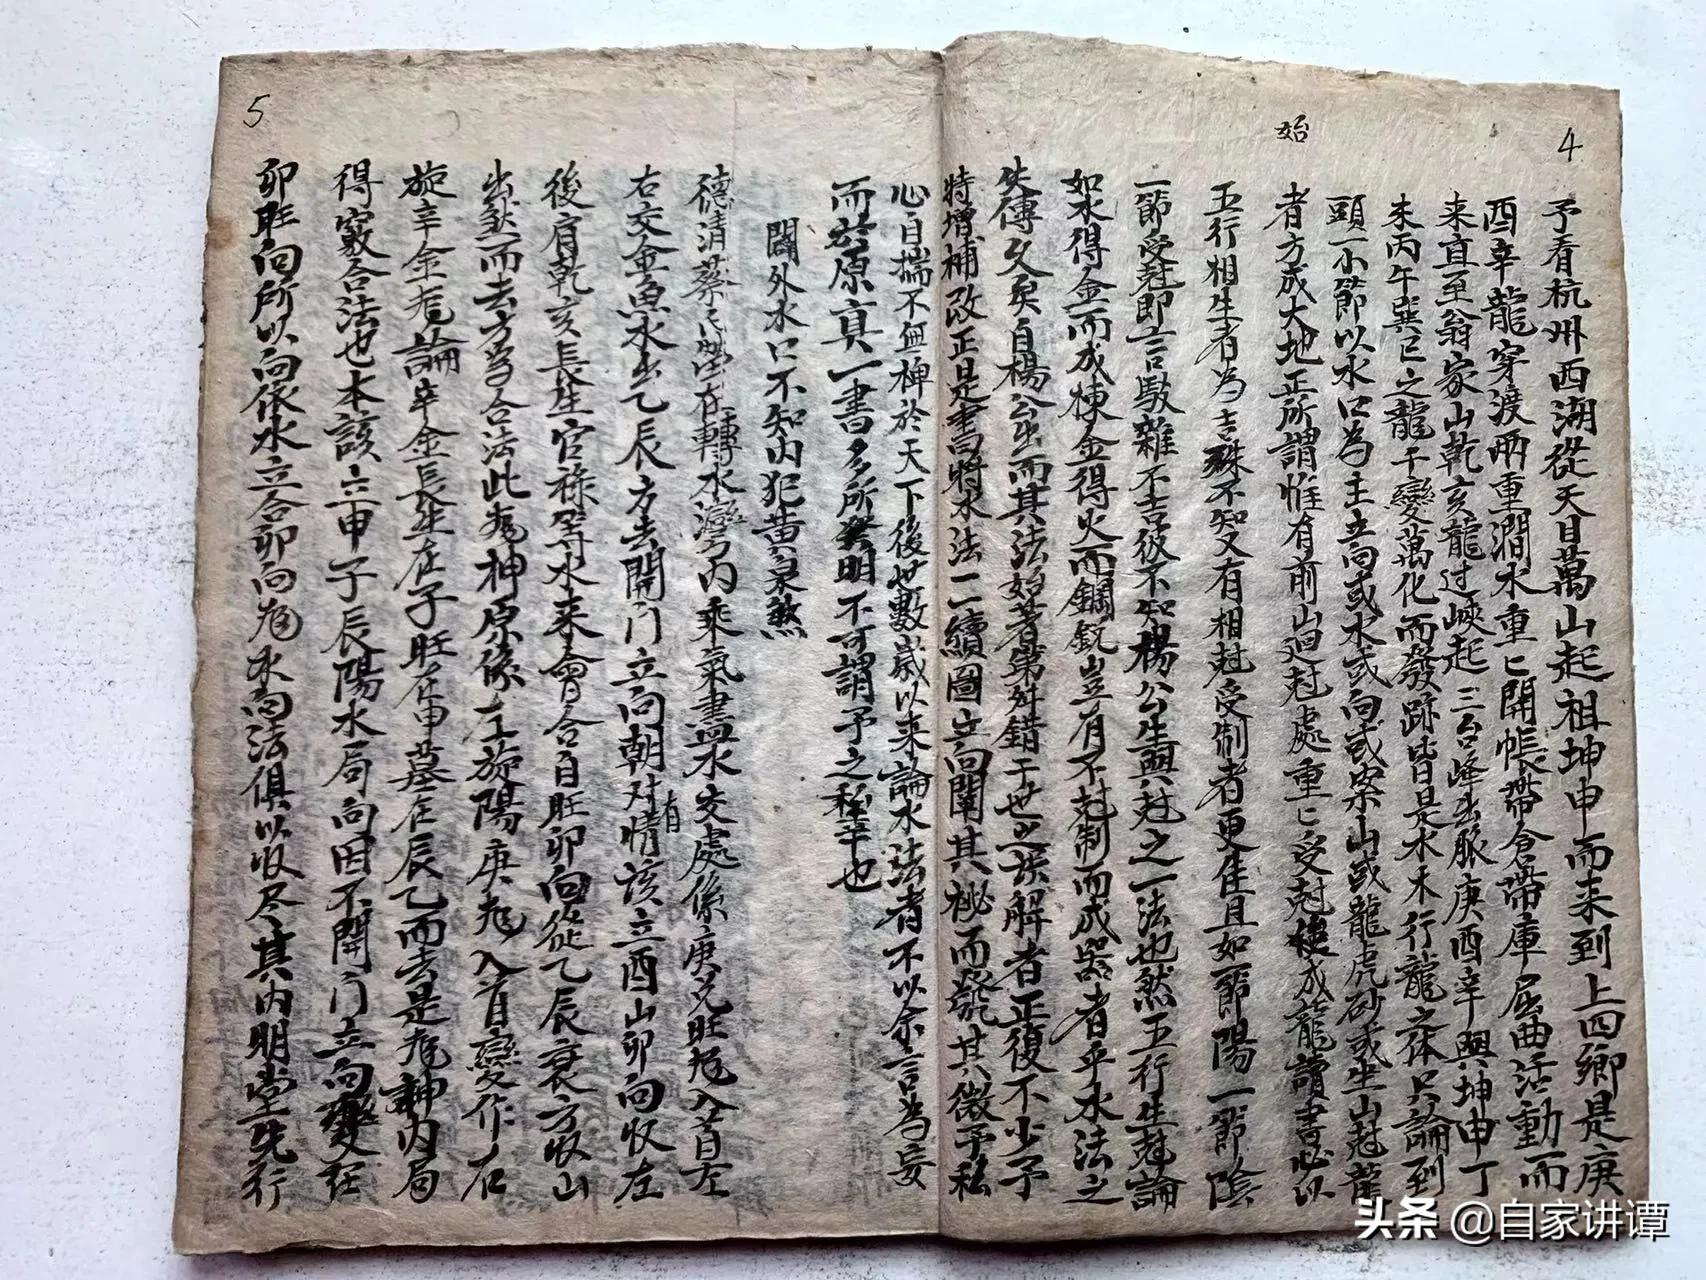 4
始
予看杭州西湖從天目萬山起祖坤申而来到上四鄉是庚
酉辛龍穿渡兩重澗水重〻開帳帶倉帶庫屈曲活動而
来直至翁家山乾亥龍过峽起三台峰出脈庚酉辛與坤申丁
未丙午巽巳之龍千變萬化而發跡皆是水木行龍之体只論到
頭一小節以水口為主立向或水或向或案山或龍虎砂或坐山尅龍
者方成大地正所謂惟有前山廻尅處重〻受尅便成龍讀書必以
五行相生者為吉殊不知又有相尅受制者更佳且如一節陽一節陰
一節受尅即言駁雜不吉彼不知楊公生與尅之一法也然五行生尅論
如木得金而成棟金得火而鐧銃豈有不尅制而成器者乎水法之
失傳久矣自楊公出而其法始著第舛錯于世之误解者正復不少予
特增補改正是書將水法二續圖立向闡其秘而發其微予私
心自揣不無裨於天下後世數歲以来論水法者不以余言為妄
而於原真一書多所發明不可謂予之秕牟也
5
闢外水口不知内犯黄泉煞
德清蔡氏墳在轉水灣内乘氣盡水交處係庚兄旺龙入首左
右交金魚水出乙辰方去開门立向朝对有情该立酉山卯向收左
後肩乾亥長生官祿等水来會合自旺卯向從乙辰衰方收山
出煞而去方為合法此龙神原係左旋陽庚龙入首變作右
旋辛金龙論辛金長生在子旺在申墓在辰乙而去是龙神内局
得竅合法也本該立申子辰陽水局向因不開门立向變旺
卯旺向所以向依水立合卯向龙水向法俱以收尽其内明堂先行
头条 @自家讲谭